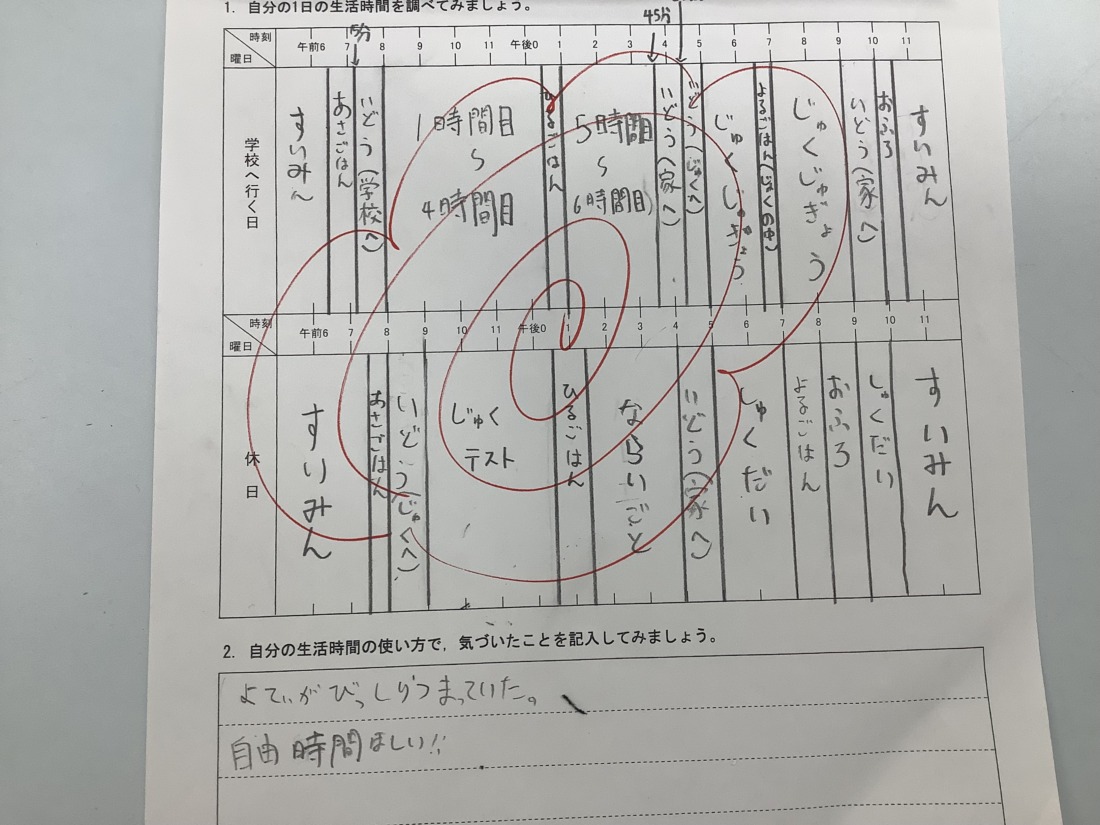 1. 自分の1日の生活時間を調べてみましょう。
5分
45分
時刻
曜日
午前6 7 8 9 10 11 午後0 1 2 3 4 5 6 7 8 9 10 11
学校へ行く日
すいみん
あさごはん
いどう(学校へ)
1時間目
〜
4時間目
ひるごはん
5時間目
〜
6時間目
いどう(家へ)
いどう(じゅくへ)
じゅくじゅぎょう
よるごはん(じゅくの中)
じゅくじゅぎょう
いどう(家へ)
おふろ
すいみん
時刻
曜日
午前6 7 8 9 10 11 午後0 1 2 3 4 5 6 7 8 9 10 11
休日
すいみん
あさごはん
いどう(じゅくへ)
じゅく
テスト
ひるごはん
ならいごと
いどう(家へ)
しゅくだい
よるごはん
おふろ
しゅくだい
すいみん
2. 自分の生活時間の使い方で,気づいたことを記入してみましょう。
よてぃがびっしりつまっていた。
自由時間ほしい!!